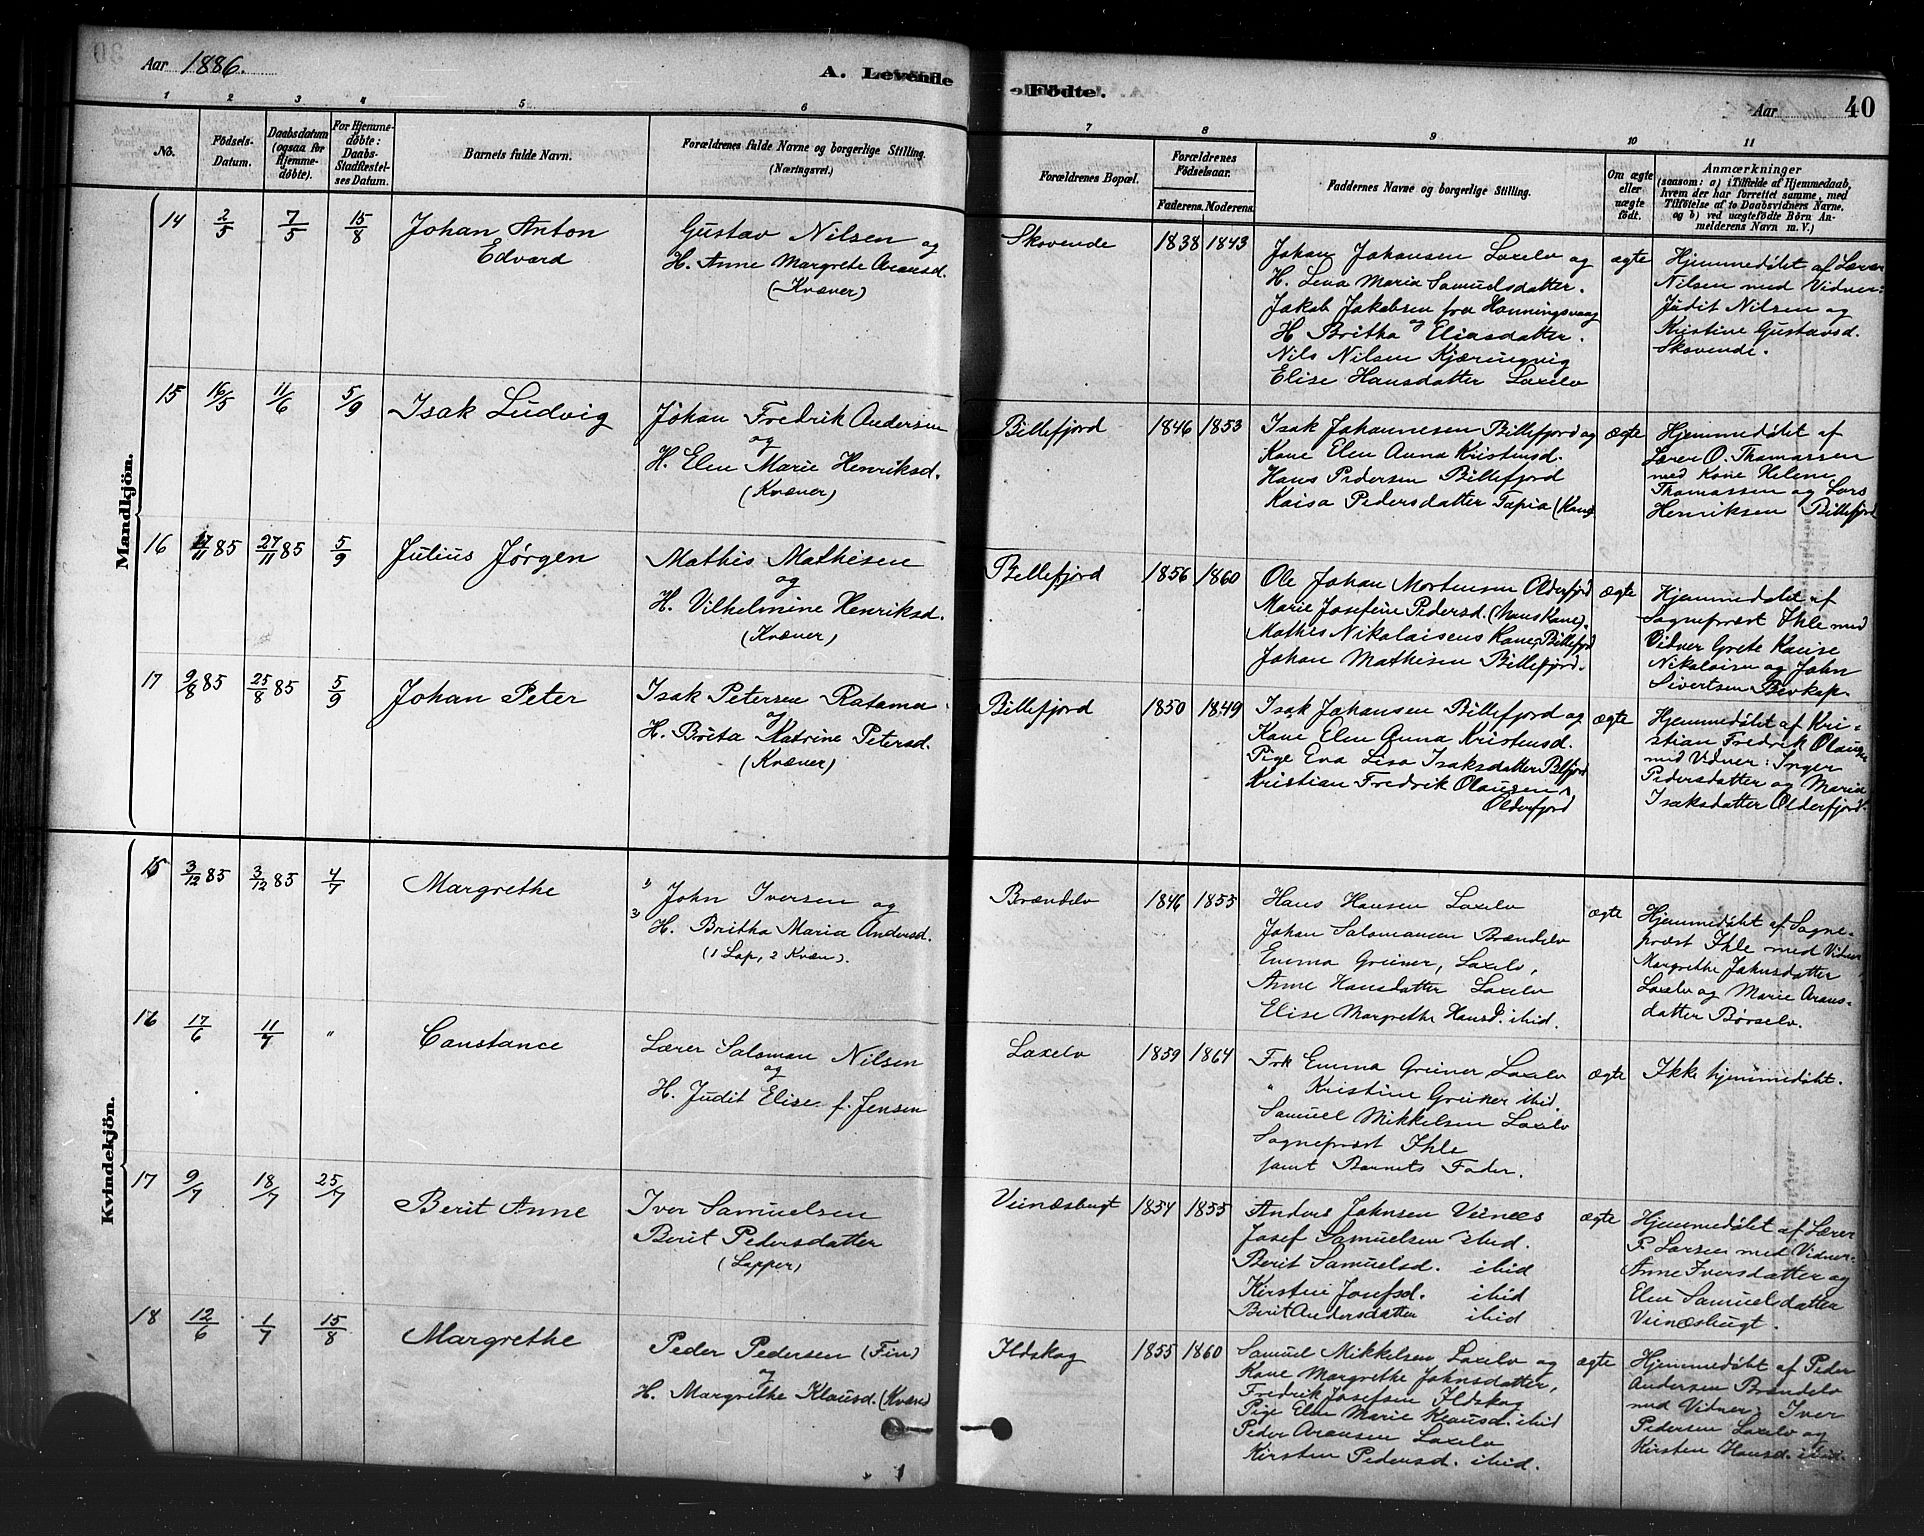 Aar 1886.
A. Levende
Födte.
Aar
40
1 2 3 4 5 6 7 8 9 10 11
No.
Födsels-Datum.
Daabsdatum (ogsaa for Hjemmedöbte).
For Hjemmedöbte: Daabs-Stadfæstelses Datum.
Barnets fulde Navn.
Forældrenes fulde Navne og borgerlige Stilling. (Næringsvei.)
Forældrenes Bopæl.
Forældrenes Födselsaar.
Faderens. Moderens.
Faddernes Navne og borgerlige Stilling.
Om ægte eller uægte födt.
Anmærkninger
(saasom: a) i Tilfælde af Hjemmedaab, hvem der har forrettet samme, med Tilföielse af to Daabsvidners Navne, og b) ved uægtefödte Börn Anmelderens Navn m. V.)
Mandkjön.
14 2/5 7/5 15/8
Johan Anton
Edvard
Gustav Nilsen og
H. Anne Margrete Aransd.
(Kvæner)
Skovende 1838 1843
Johan Johansen Laxelv og
H. Lena Maria Samuelsdatter.
Jakob Jakobsen fra Honningsvaag
og
H. Britha Eliasdatter.
Nils Nilsen Kjæringvig
Elise Hansdatter Laxelv
ægte
Hjemmedøbt af Lærer
Nilsen med Vidner:
Judit Nilsen og
Kristine Gustavsd.
Skovende.
15 16/5 11/6 5/9
Isak Ludvig
Johan Fredrik Andersen
og
H. Elen Marie Henriksd.
(Kvæner)
Billefjord 1846 1853
Isak Johannesen Billefjord og
Kone Elen Anna Kristensd.
Hans Pedersen Billefjord
Kaisa Pedersdatter Tapia (Kone)
ægte
Hjemmedøbt af
Lærer O. Thomassen
med Kone Helene
Thomassen og Lars
Henriksen Billefjord
16 17/11 85 27/11 85 5/9
Julius Jørgen
Mathis Mathisen
og
H. Vilhelmine Henriksd.
(Kvæner)
Billefjord 1856 1860
Ole Johan Mortensen Olderfjord
Marie Josefine Pedersd. (hans Kone).
Mathis Nikolaisens Kone, Billefjord
Johan Mathisen Billefjord.
ægte
Hjemmedøbt af
Sognepræst Ihle med
Vidner Grete Kause
Nikolaisen og John
Sivertsen
17 9/8 85 25/8 85 5/9
Johan Peter
Isak Petersen Ratama
og
H. Brita Katrine Petersd.
(Kvæner)
Billefjord 1850 1849
Isak Johansen Billefjord og
Kone Elen Anna Kristensd.
Pige Eva Lisa Isaksdatter Billefjord
Kristian Fredrik Olausen
Olderfjord
ægte
Hjemmedøbt af Kri-
stian Fredrik Olausen
med Vidner: Inger
Pedersdatter og Maria
Isaksdatter Olderfjord.
Kvindekjön.
15 3/12 85 3/12 85 4/7
Margrethe
John Iversen og
H. Britha Maria Andersd.
(1 Lap, 2 Kvæn).
Brændelv 1846 1855
Hans Hansen Laxelv
Johan Salomonsen Brændelv
Emma Greiner, Laxelv,
Anne Hansdatter Laxelv
Elise Margrethe Hansd. ibid.
ægte
Hjemmedøbt af Sogne-
præst Ihle med Vidner
Margrethe Johnsdatter
Laxelv og Marie Arons-
datter Børselv.
16 17/6 11/7 "
Constance
Lærer Salomon Nilsen
og
H. Judit Elise f. Jensen
Laxelv 1859 1864
Frk Emma Greiner Laxelv
" Kristine Greiner ibid.
Samuel Mikkelsen Laxelv
Sognepræst Ihle
samt Barnets Fader.
ægte
Ikke hjemmedøbt.
17 9/7 18/7 25/7
Berit Anne
Iver Samuelsen
Berit Pedersdatter
(Lapper)
Veinæsbugt 1854 1855
Anders Johnsen Veinæs
Josef Samuelsen ibid.
Berit Samuelsd. ibid
Kirsten Josefsd. ibid
Berit Andersdatter ibid
ægte
Hjemmedøbt af Lærer
P. Larsen med Vidner:
Anne Iversdatter og
Elen Samuelsdatter
Veinæsbugt.
18 12/6 1/7 15/8
Margrethe
Peder Pedersen (Fin)
og
H. Margrethe Klausd. (Kvæn)
Ildskog 1855 1860
Samuel Mikkelsen Laxelv og
Kone Margrethe Johnsdatter,
Fredrik Josefsen Ildskog
Pige Elen Marie Klausd. ibid
Peder Aronsen Laxelv
Kirsten Pedersd. ibid.
ægte
Hjemmedøbt af Peder
Andersen Brændelv
med Vidner: Iver
Pedersen Laxelv og
Kirsten Hansd. ibid.